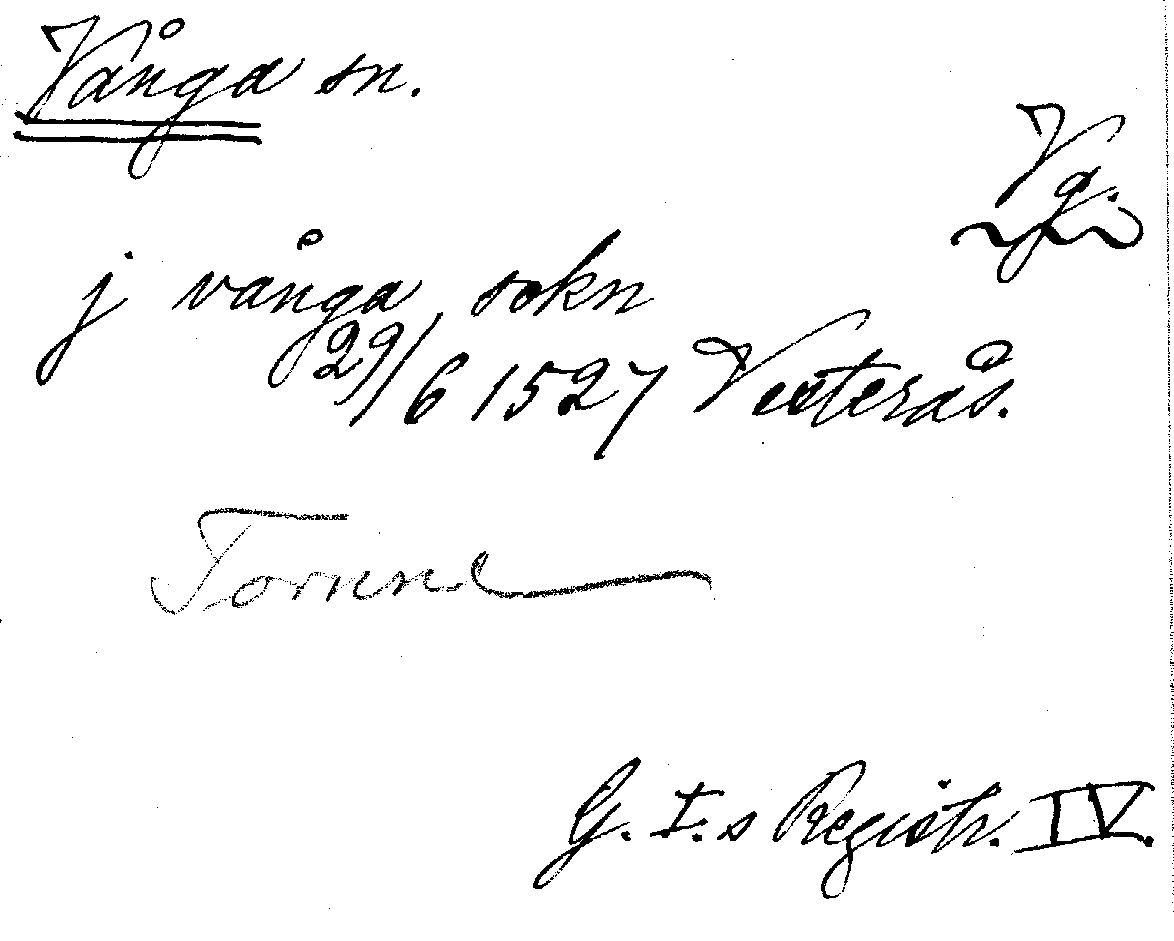 Vånga sn.
Vg.
j vånga sokn
29/6 1527 Vesterås.
G. I:s Registr. IV.